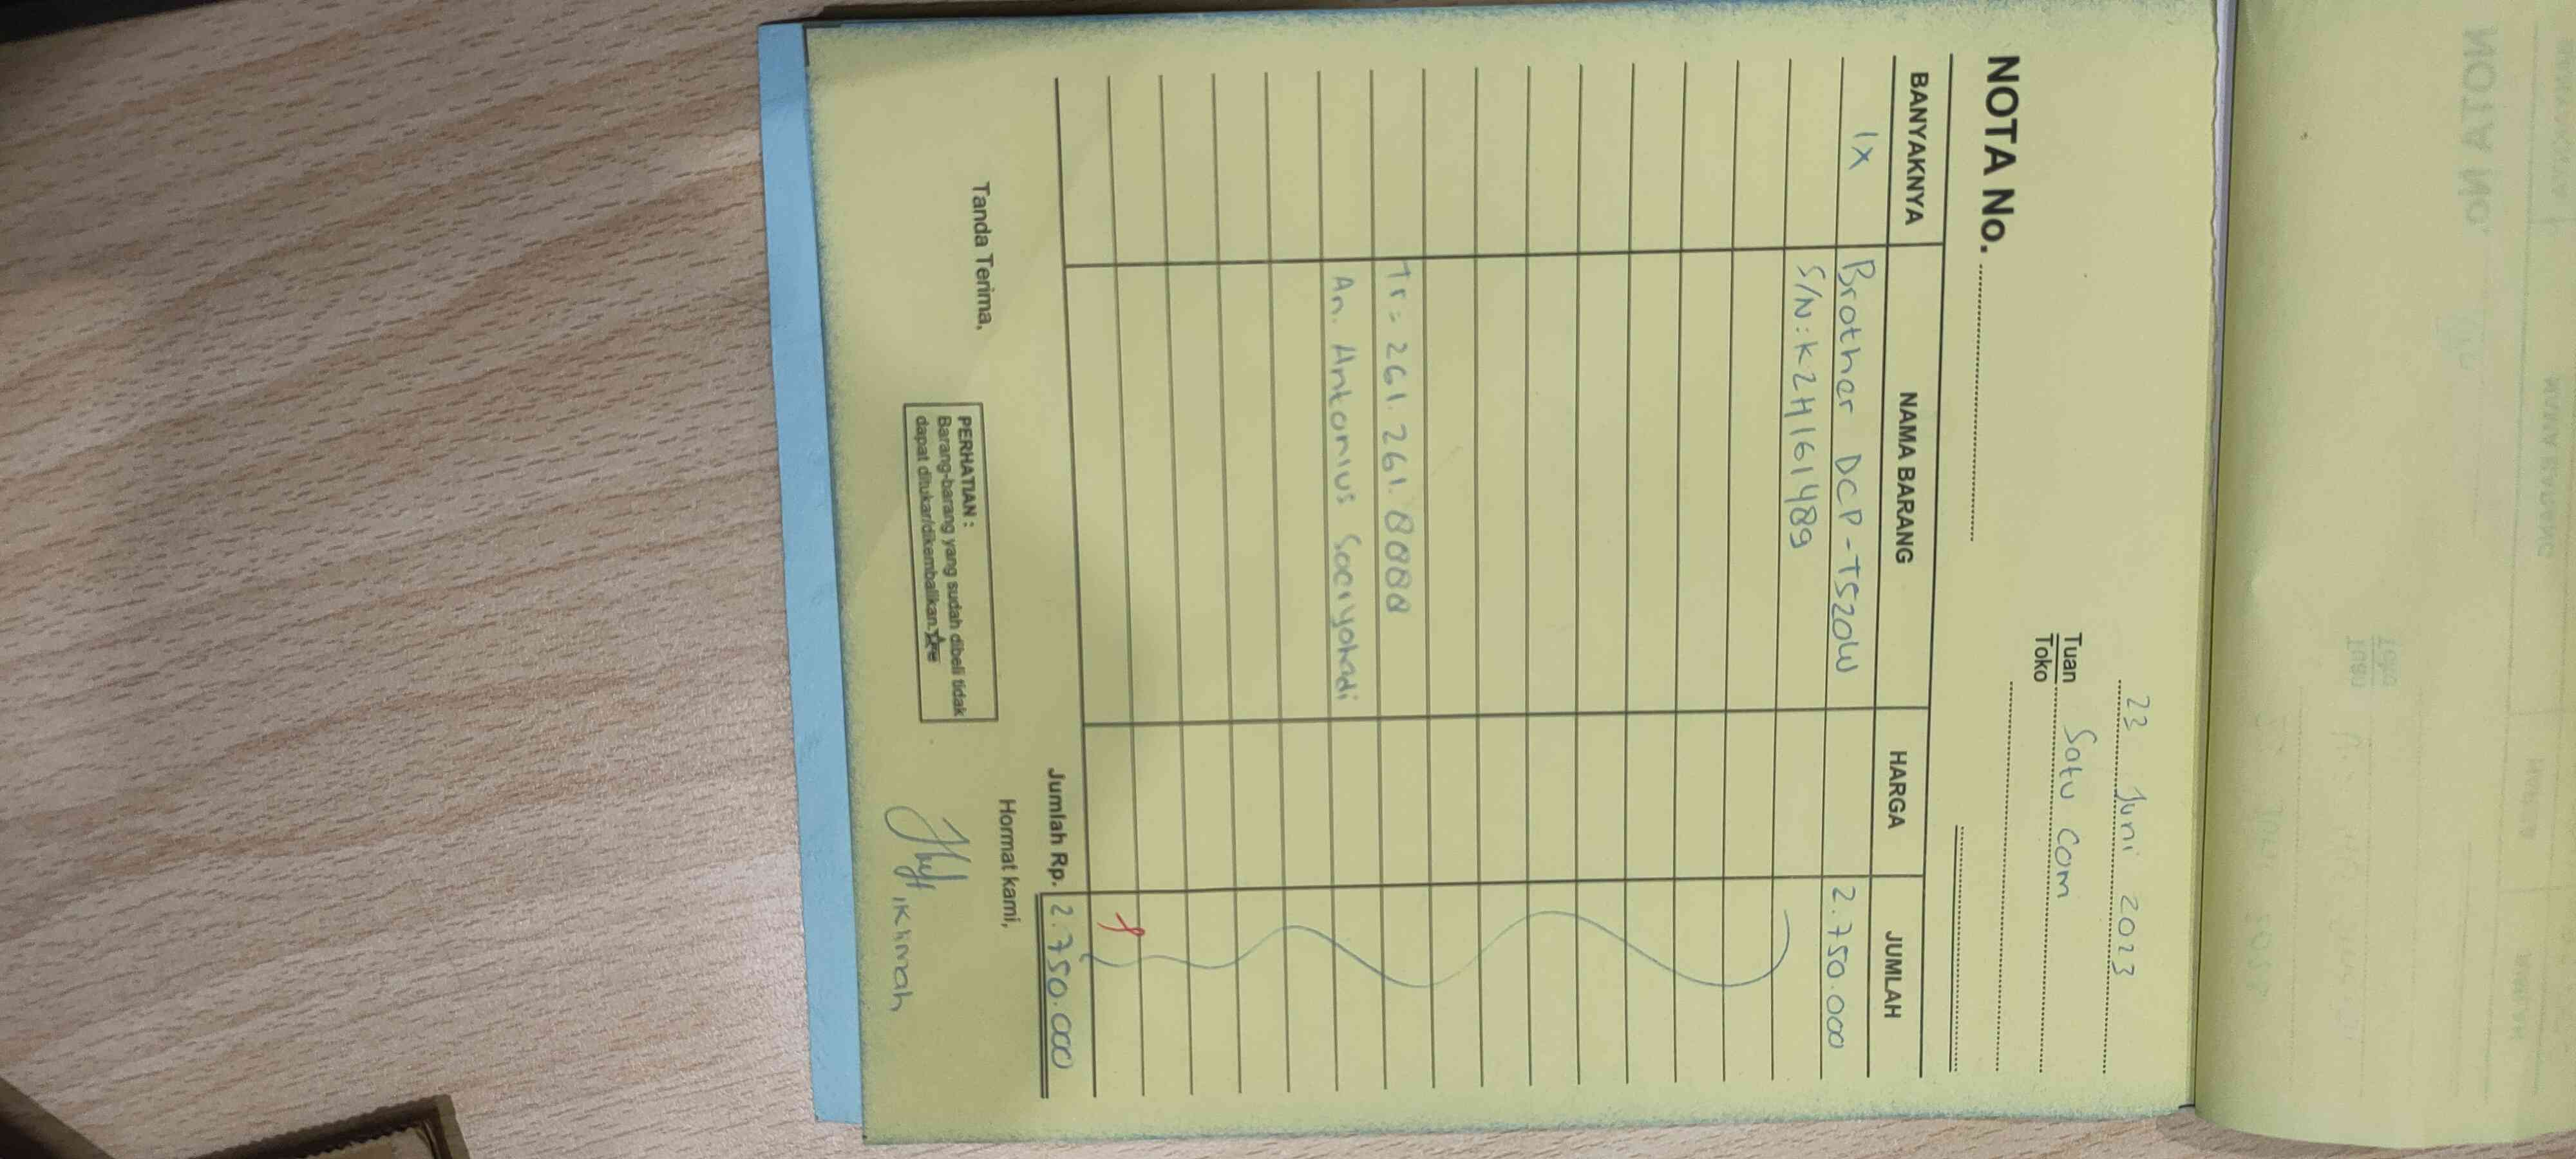 23 Juni 2023
Tuan Satu Com
Toko
NOTA No.
BANYAKNYA NAMA BARANG HARGA JUMLAH
1x Brother DCP-T520W 2.750.000
S/N: K2H161489
Tr = 261.261.8888
An. Antonius Soeryohadi
Jumlah Rp. 2.750.000
Tanda Terima, Hormat kami,
PERHATIAN :
Barang-barang yang sudah dibeli tidak
dapat ditukar/dikembalikan.
Iklimah